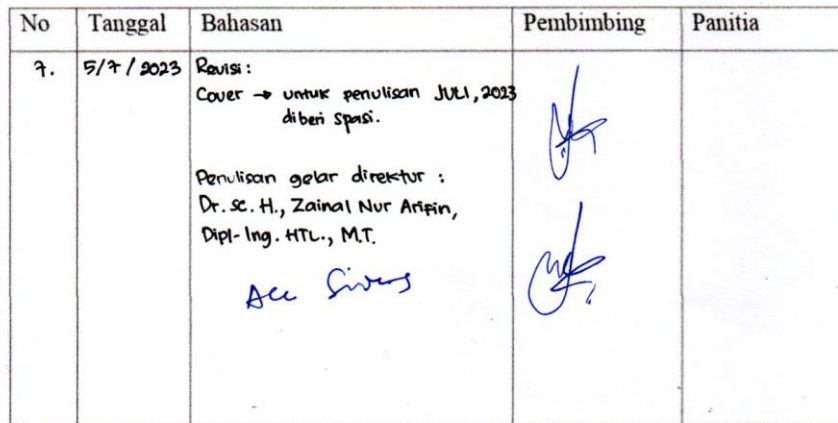 No Tanggal Bahasan Pembimbing Panitia
7. 5/7/2023 Revisi :
Cover → untuk penulisan JULI, 2023
diberi spasi.
Penulisan gelar direktur :
Dr. sc. H., Zainal Nur Arifin,
Dipl-Ing. HTL., M.T.
Acc Sidang